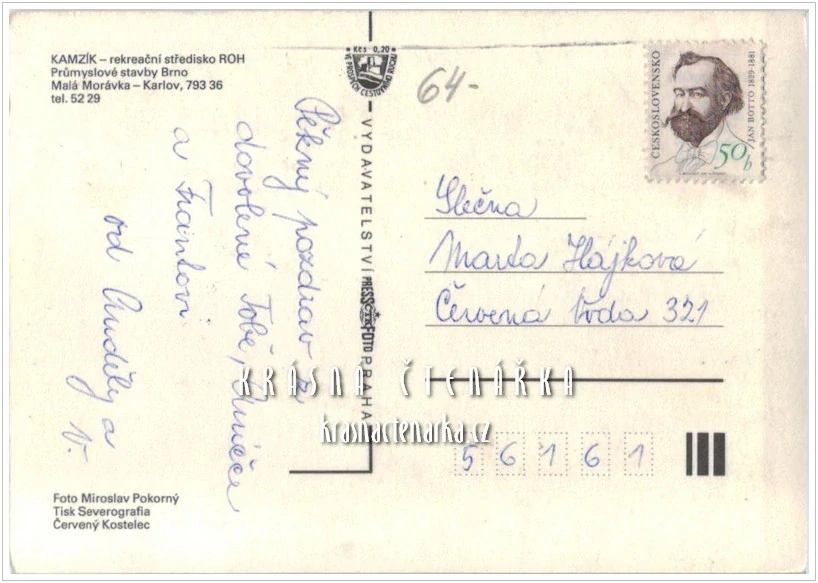 KAMZÍK – rekreační středisko ROH
Průmyslové stavby Brno
Malá Morávka – Karlov, 793 36
tel. 52 29
Pěkný pozdrav z
dovolené Tobě,
a Frantovi
od Anděly a
V.
Foto Miroslav Pokorný
Tisk Severografia
Červený Kostelec
Kčs 0,20
VE PROSPĚCH CESTOVNÍHO RUCHU
VYDAVATELSTVÍ PRESSFOTO PRAHA
64-
ČESKOSLOVENSKO
JAN BOTTO 1829-1881
50 h
Slečna
Marta Hájková
Červená Voda 321
56161
KRÁSNÁ ČTENÁŘKA
krasnactenarka.cz